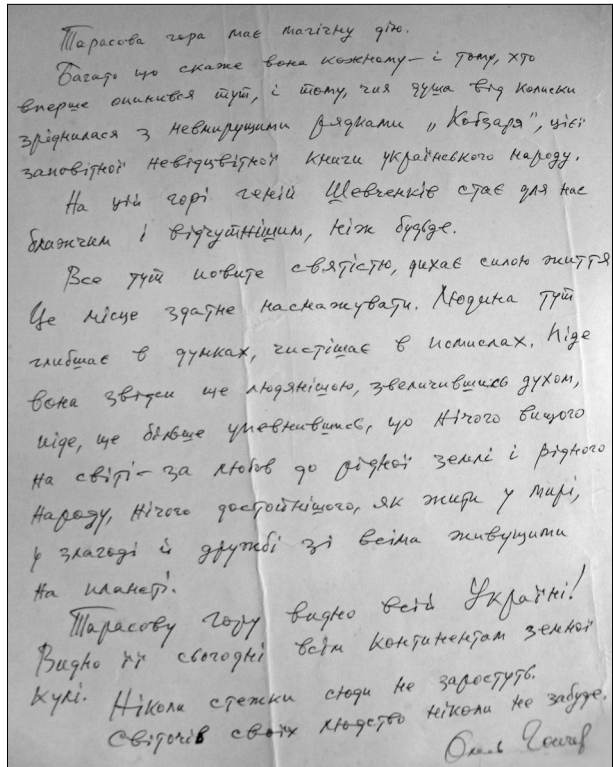 Тарасова гора має магічну дію.
Багато що скаже вона кожному – і тому, хто
вперше опинився тут, і тому, чия душа від колиски
зріднилася з невмирущими рядками „Кобзаря”, цієї
заповітної невідцвітної книги українського народу.
На цій горі геній Шевченків стає для нас
ближчим і відчутнішим, ніж будьде.
Все тут повите святістю, дихає силою життя
Це місце здатне наснажувати. Людина тут
глибшає в думках, чистішає в помислах. Піде
вона звідси ще людянішою, звеличившись духом,
піде, ще більше упевнившись, що нічого вищого
на світі – за любов до рідної землі і рідного
народу, нічого достойнішого, як жити у мирі,
у злагоді й дружбі зі всіма живущими
на планеті.
Тарасову гору видно всій Україні!
Видно її сьогодні всім континентам земної
кулі. Ніколи стежки сюди не заростуть.
Світочів своїх людство ніколи не забуде.
Олесь Гончар